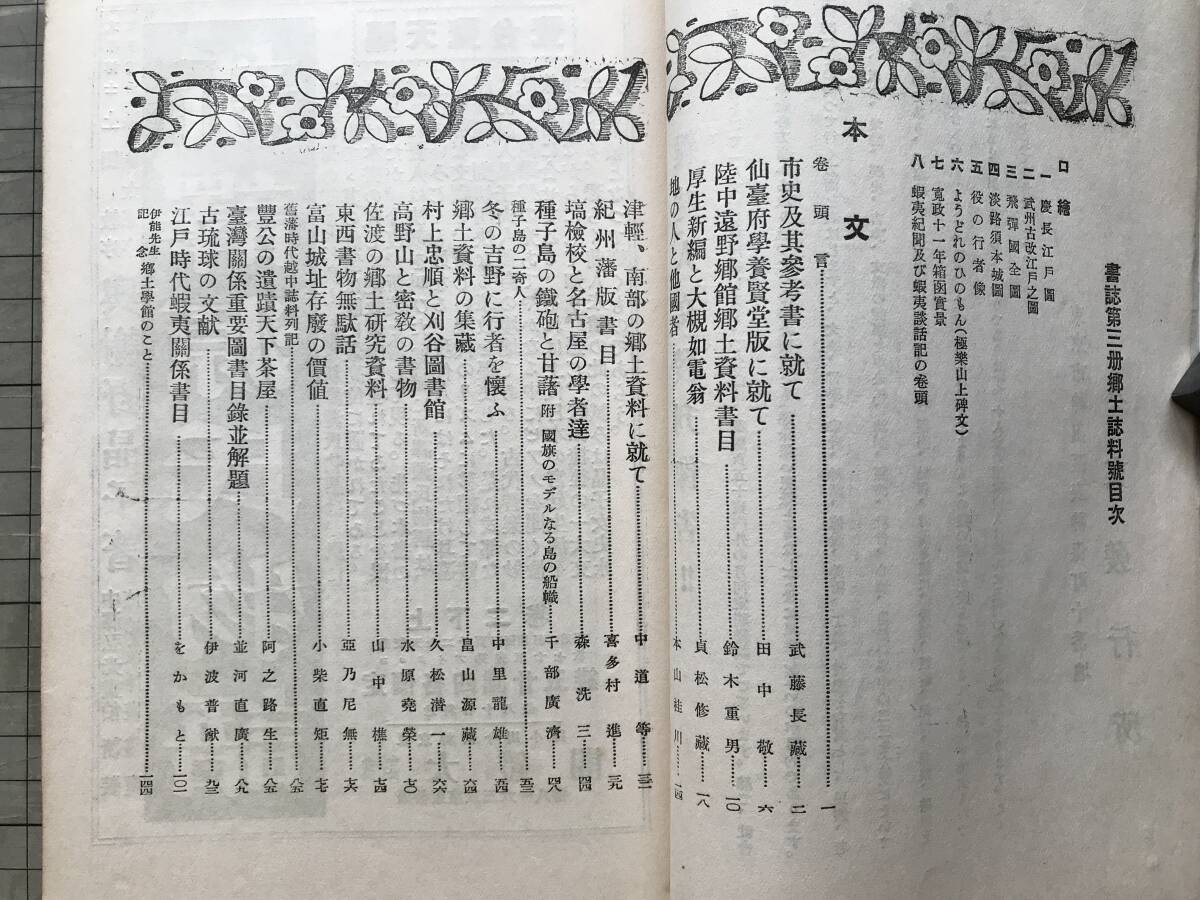 書誌第三册郷土誌料號目次
口繪
一 慶長江戸圖
二 武州古改江戸之圖
三 飛彈國全圖
四 淡路須本城圖
五 役の行者像
六 ようどれのひのもん(極樂山上碑文)
七 寬政十一年箱函實景
八 蝦夷紀聞及び蝦夷談話記の卷頭
本文
卷頭言…一
市史及其參考書に就て…武藤長藏…二
仙臺府學養賢堂版に就て…田中敬…六
陸中遠野郷館郷土資料書目…鈴木重男…一〇
厚生新編と大槻如電翁…貞松修藏…一八
地の人と他國者…本山桂川…二四
津輕、南部の郷土資料に就て…中道等…三二
紀州藩版書目…喜多村進…三九
塙檢校と名古屋の學者達…森洗三…四四
種子島の鐵砲と甘藷 附 國旗のモデルなる島の船幟…千部廣濟…四八
種子島の二奇人…五三
冬の吉野に行者を懷ふ…中里龍雄…五四
郷土資料の集藏…畠山源藏…六四
村上忠順と刈谷圖書館…久松潜一…六六
高野山と密教の書物…水原堯榮…七〇
佐渡の郷土研究資料…山中樵…七四
東西書物無駄話…亞乃尼無…七六
富山城址存廢の價値…小柴直矩…七七
舊藩時代越中誌料列記…八五
豐公の遺蹟天下茶屋…阿之路生…八五
臺灣關係重要圖書目錄並解題…並河直廣…八九
古琉球の文献…伊波普猷…九三
江戸時代蝦夷關係書目…をかもと…一〇一
伊能先生記念 郷土學館のこと…一四四